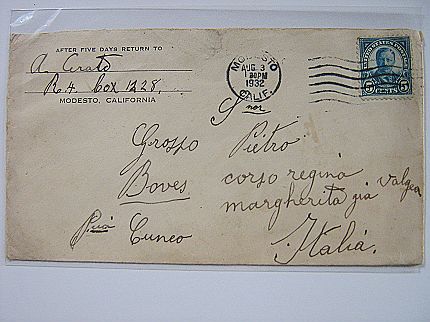 AFTER FIVE DAYS RETURN TO
A. Cerato
R.4. Box 1228.
MODESTO, CALIFORNIA
MODESTO
AUG 3
30PM
1932
CALIF.
UNITED STATES POSTAGE
5 CENTS 5
Snor
Grosso Pietro
Boves corso regina
margherita già Valgea
Cuneo
Italiá.